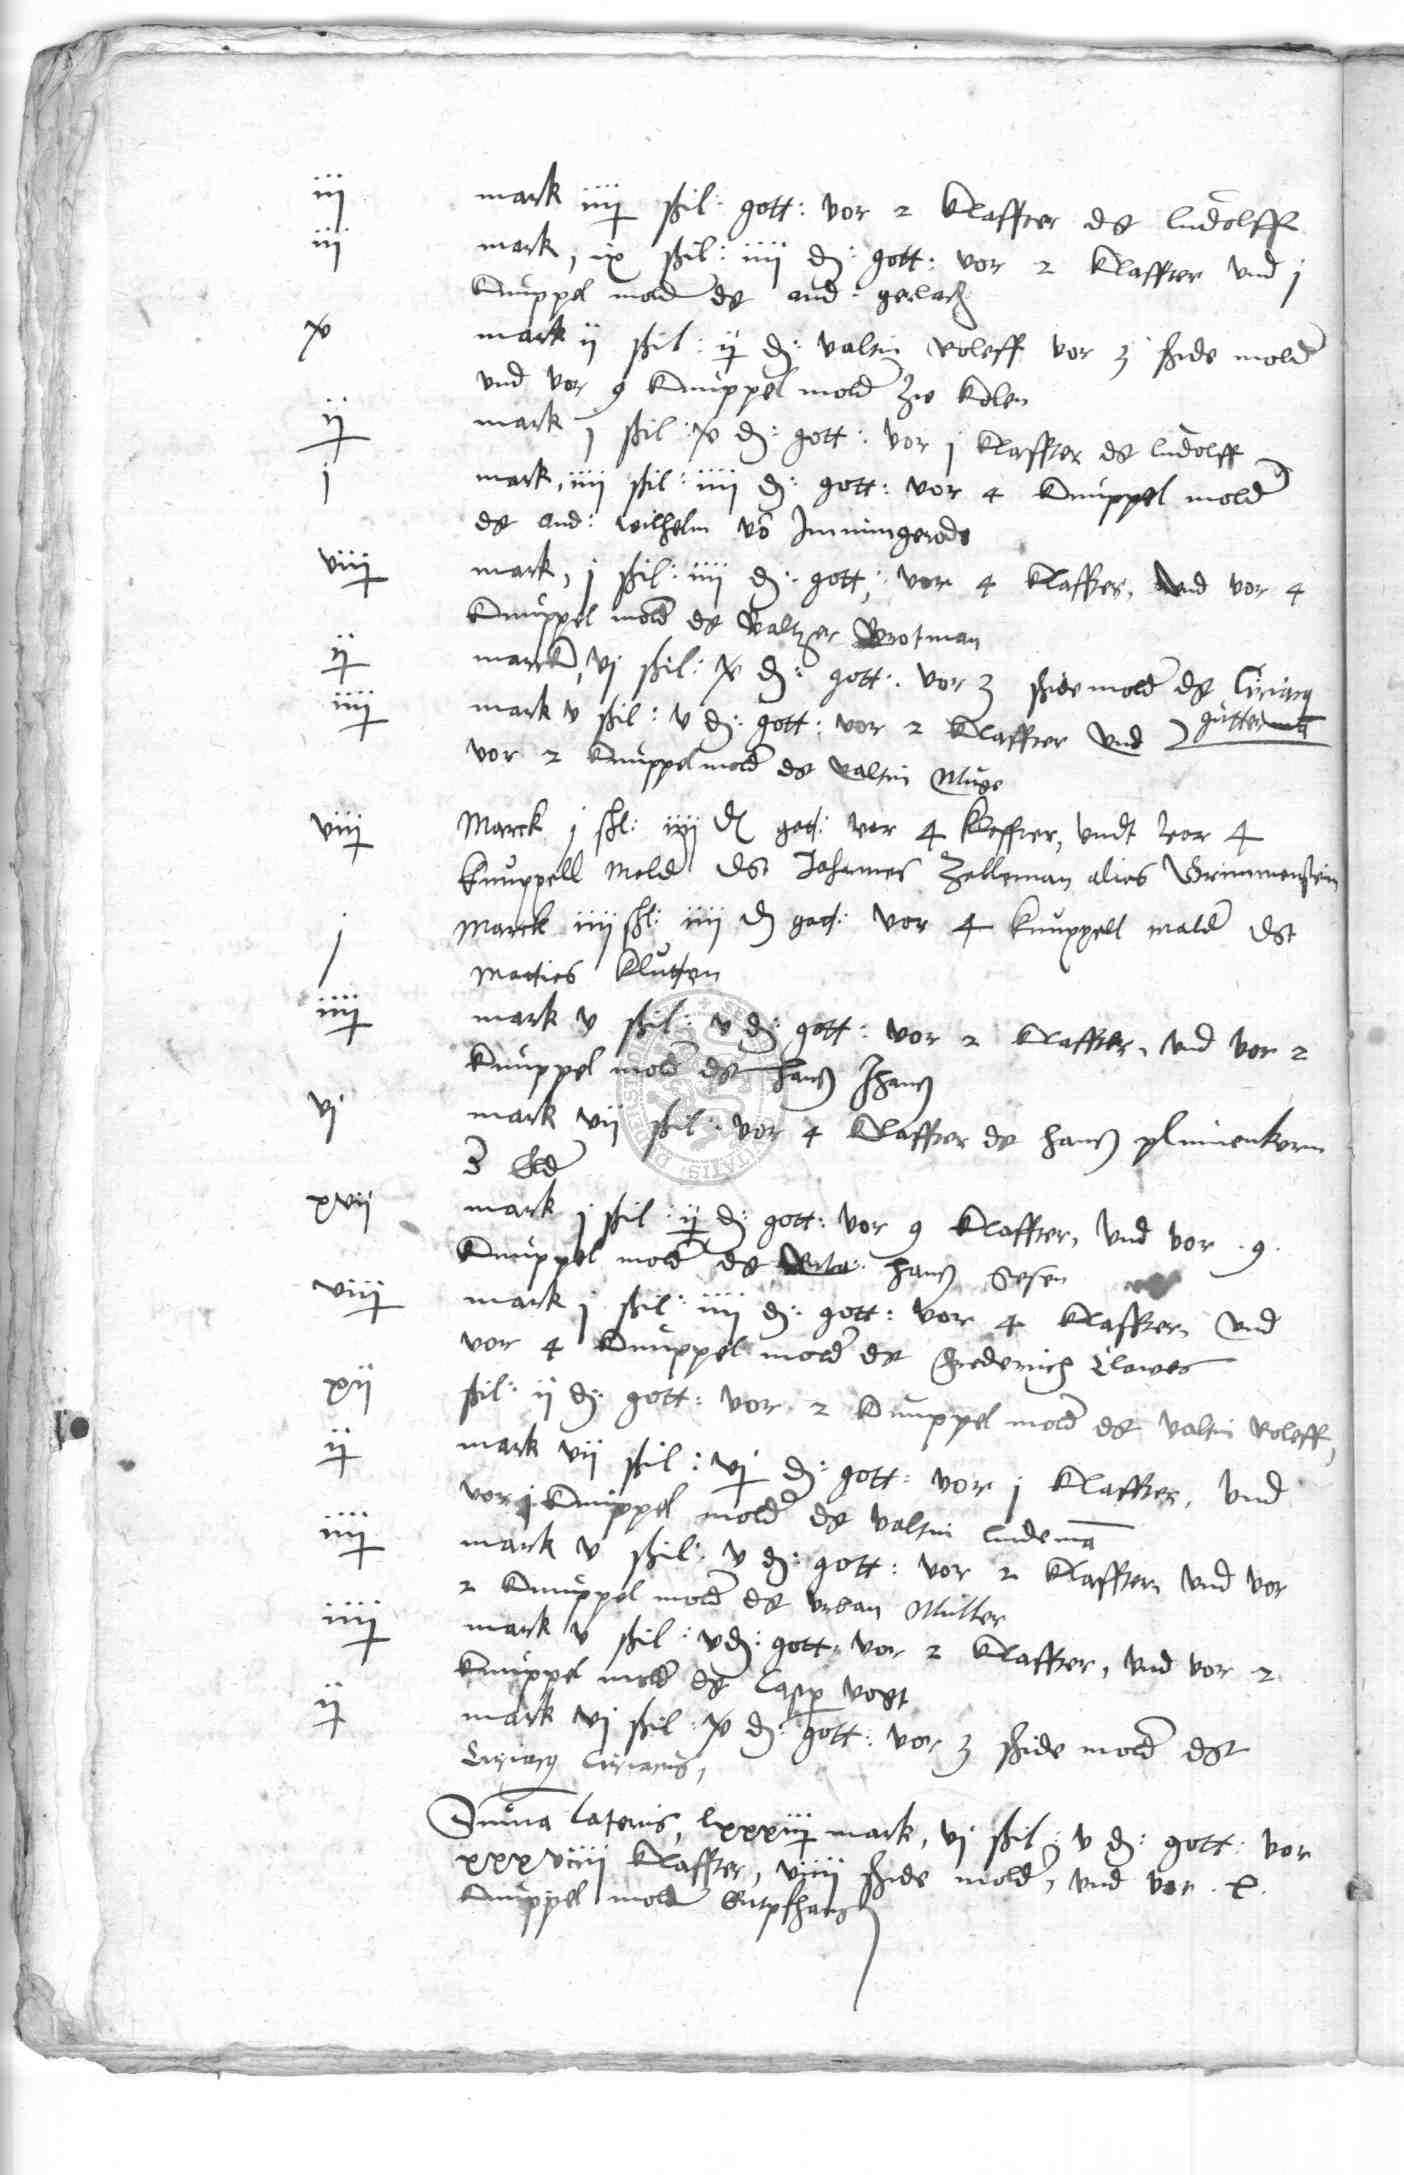 iij mark iiij schil: gott: vor 2 klaffter ds ludolff
iij mark, ix schil: iiij d: gott: vor 2 klaffter vnd j
knuppel mold ds and: gerlach
x mark ij schil: ij d: valtin roleff vor 3 schide mold
vnd vor 9 knuppel mold zu kolen
ij mark j schil: x d: gott: vor j klaffter ds ludolff
j mark, iiij schil: iiij d: gott: vor 4 knuppel mold
ds and: wilhelm vo Immingerode
viij mark, j schil: iiij d: gott: vor 4 klaffter, vnd vor 4
knuppel mold ds Baltzer Protman
ij marck, vj schil: x d: gott: vor 3 schidemold ds Ciriacg
gutterma
iiij mark v schil: v d: gott: vor 2 klaffter vnd
vor 2 knuppelmold ds valtin Muge
viij Marck j schl: iiij d got: vor 4 kleffter, vndt vor 4
knuppell Mold dst Johannes Zelleman alies Grimmenstein
j Marck iiij schl: iiij d got: vor 4 knuppell mald dst
Matties Klutten
iiij mark v schil: v d: gott: vor 2 klaffter, vnd vor 2
knuppel mold ds hans Jhans
vj mark vij schil: vor 4 klaffter ds hans plumenkorn
xvij mark j schil: ij d: gott: vor 9 klaffter, vnd vor .9.
knuppel mold ds hans Gesen
viij mark j schil: iiij d: gott: vor 4 klaffter, vnd
vor 4 knuppel mold ds frederich Clawes
xij schil: ij d: gott: vor 2 knuppel mold ds valtin roleff,
ij mark vij schil: vj d: gott: vor j klaffter, vnd
vor j knuppel mold ds valtin ludema
iiij mark v schil: v d: gott: vor 2 klaffter, vnd vor
2 knuppel mold ds vrban Muller
iiij mark v schil: v d: gott: vor 2 klaffter, vnd vor 2
knuppel mold ds Casp vogt
ij mark vj schil: x d: gott: vor 3 schide mold dst
Ciriacg Ciriacus,
Suma lateris, lxxxiij mark, vj schil: v d: gott: vor
xxxviiij klaffter, viiij schide mold, vnd vor .l.
knuppel mold entpfhang